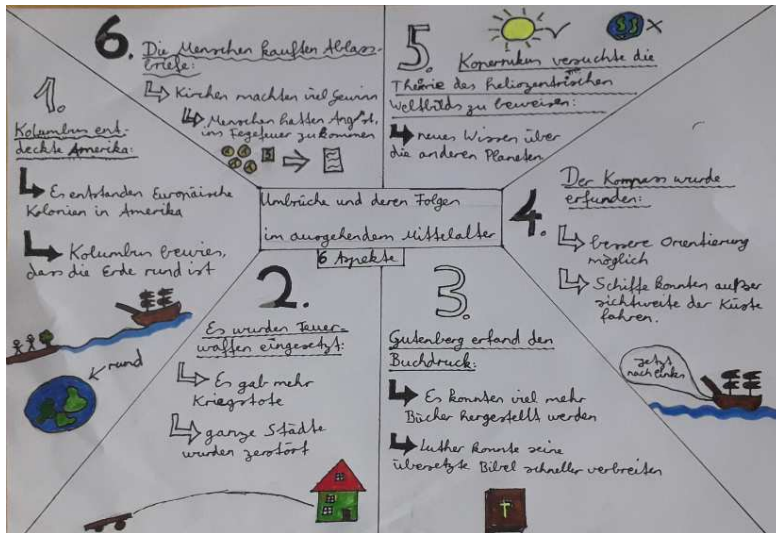 Umbrüche und deren Folgen
im ausgehendem Mittelalter
6 Aspekte
1.
Kolumbus ent-
deckte Amerika:
Es entstanden Europäische
Kolonien in Amerika
Kolumbus bewies,
dass die Erde rund ist
rund
2.
Es wurden Feuer-
waffen eingesetzt:
Es gab mehr
Kriegstote
ganze Städte
wurden zerstört
3.
Gutenberg erfand den
Buchdruck:
Es konnten viel mehr
Bücher hergestellt werden
Luther konnte seine
übersetzte Bibel schneller verbreiten
4.
Der Kompass wurde
erfunden:
bessere Orientierung
möglich
Schiffe konnten außer
sichtweite der Küste
fahren.
jetzt
nach links
5.
Kopernikus versuchte die
Theorie des heliozentrischen
Weltbilds zu beweisen:
neues Wissen über
die anderen Planeten
6.
Die Menschen kauften Ablass-
briefe:
Kirchen machten viel Gewinn
Menschen hatten Angst,
ins Fegefeuer zu kommen